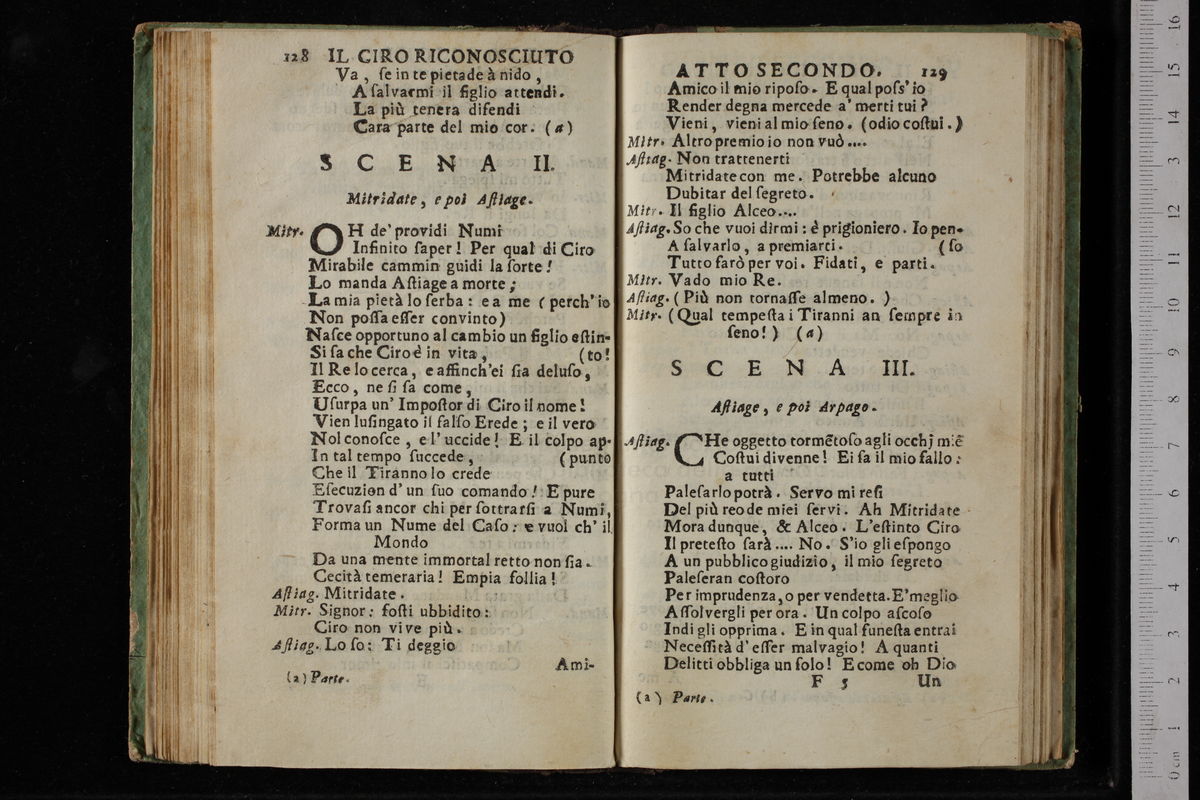 128 IL CIRO RICONOSCIUTO
Va, ſe in te pietade à nido,
A ſalvarmi il figlio attendi.
La più tenera difendi
Cara parte del mio cor. (a)
SCENA II.
Mitridate, e poi Aſtiage.
Mitr. OH de' providi Numi
Infinito ſaper! Per qual di Ciro
Mirabile cammin guidi la ſorte!
Lo manda Aſtiage a morte;
La mia pietà lo ſerba: e a me (perch'io
Non poſſa eſſer convinto)
Naſce opportuno al cambio un figlio eſtin-
Si ſa che Ciro è in vita, (to!
Il Re lo cerca, e affinch'ei ſia deluſo,
Ecco, ne ſi ſa come,
Uſurpa un' Impoſtor di Ciro il nome!
Vien luſingato il falſo Erede; e il vero
Nol conoſce, e l'uccide! E il colpo ap-
In tal tempo ſuccede, (punto
Che il Tiranno lo crede
Eſecuzion d'un ſuo comando! E pure
Trovaſi ancor chi per ſottrarſi a Numi,
Forma un Nume del Caſo: e vuol ch' il
Mondo
Da una mente immortal retto non ſia.
Cecità temeraria! Empia follia!
Aſtiag. Mitridate.
Mitr. Signor: foſti ubbidito:
Ciro non vive più.
Aſtiag. Lo ſo: Ti deggio
Ami-
(a) Parte.
ATTO SECONDO. 129
Amico il mio ripoſo. E qual poſs'io
Render degna mercede a' merti tui?
Vieni, vieni al mio ſeno. (odio coſtui.)
Mitr. Altro premio io non vuò....
Aſtiag. Non trattenerti
Mitridate con me. Potrebbe alcuno
Dubitar del ſegreto.
Mitr. Il figlio Alceo....
Aſtiag. So che vuoi dirmi: è prigioniero. Io pen-
A ſalvarlo, a premiarti. (ſo
Tutto farò per voi. Fidati, e parti.
Mitr. Vado mio Re.
Aſtiag. (Più non tornaſſe almeno.)
Mitr. (Qual tempeſta i Tiranni an ſempre in
ſeno!) (a)
SCENA III.
Aſtiage, e poi Arpago.
Aſtiag. CHe oggetto tormẽtoſo agli occhj miẽ
Coſtui divenne! Ei ſa il mio fallo:
a tutti
Paleſarlo potrà. Servo mi reſi
Del più reo de miei ſervi. Ah Mitridate
Mora dunque, & Alceo. L'eſtinto Ciro
Il preteſto ſarà.... No. S'io gli eſpongo
A un pubblico giudizio, il mio ſegreto
Paleſeran coſtoro
Per imprudenza, o per vendetta. E'meglio
Aſſolvergli per ora. Un colpo aſcoſo
Indi gli opprima. E in qual funeſta entrai
Neceſſità d'eſſer malvagio! A quanti
Delitti obbliga un ſolo! E come oh Dio
F 5 Un
(a) Parte.